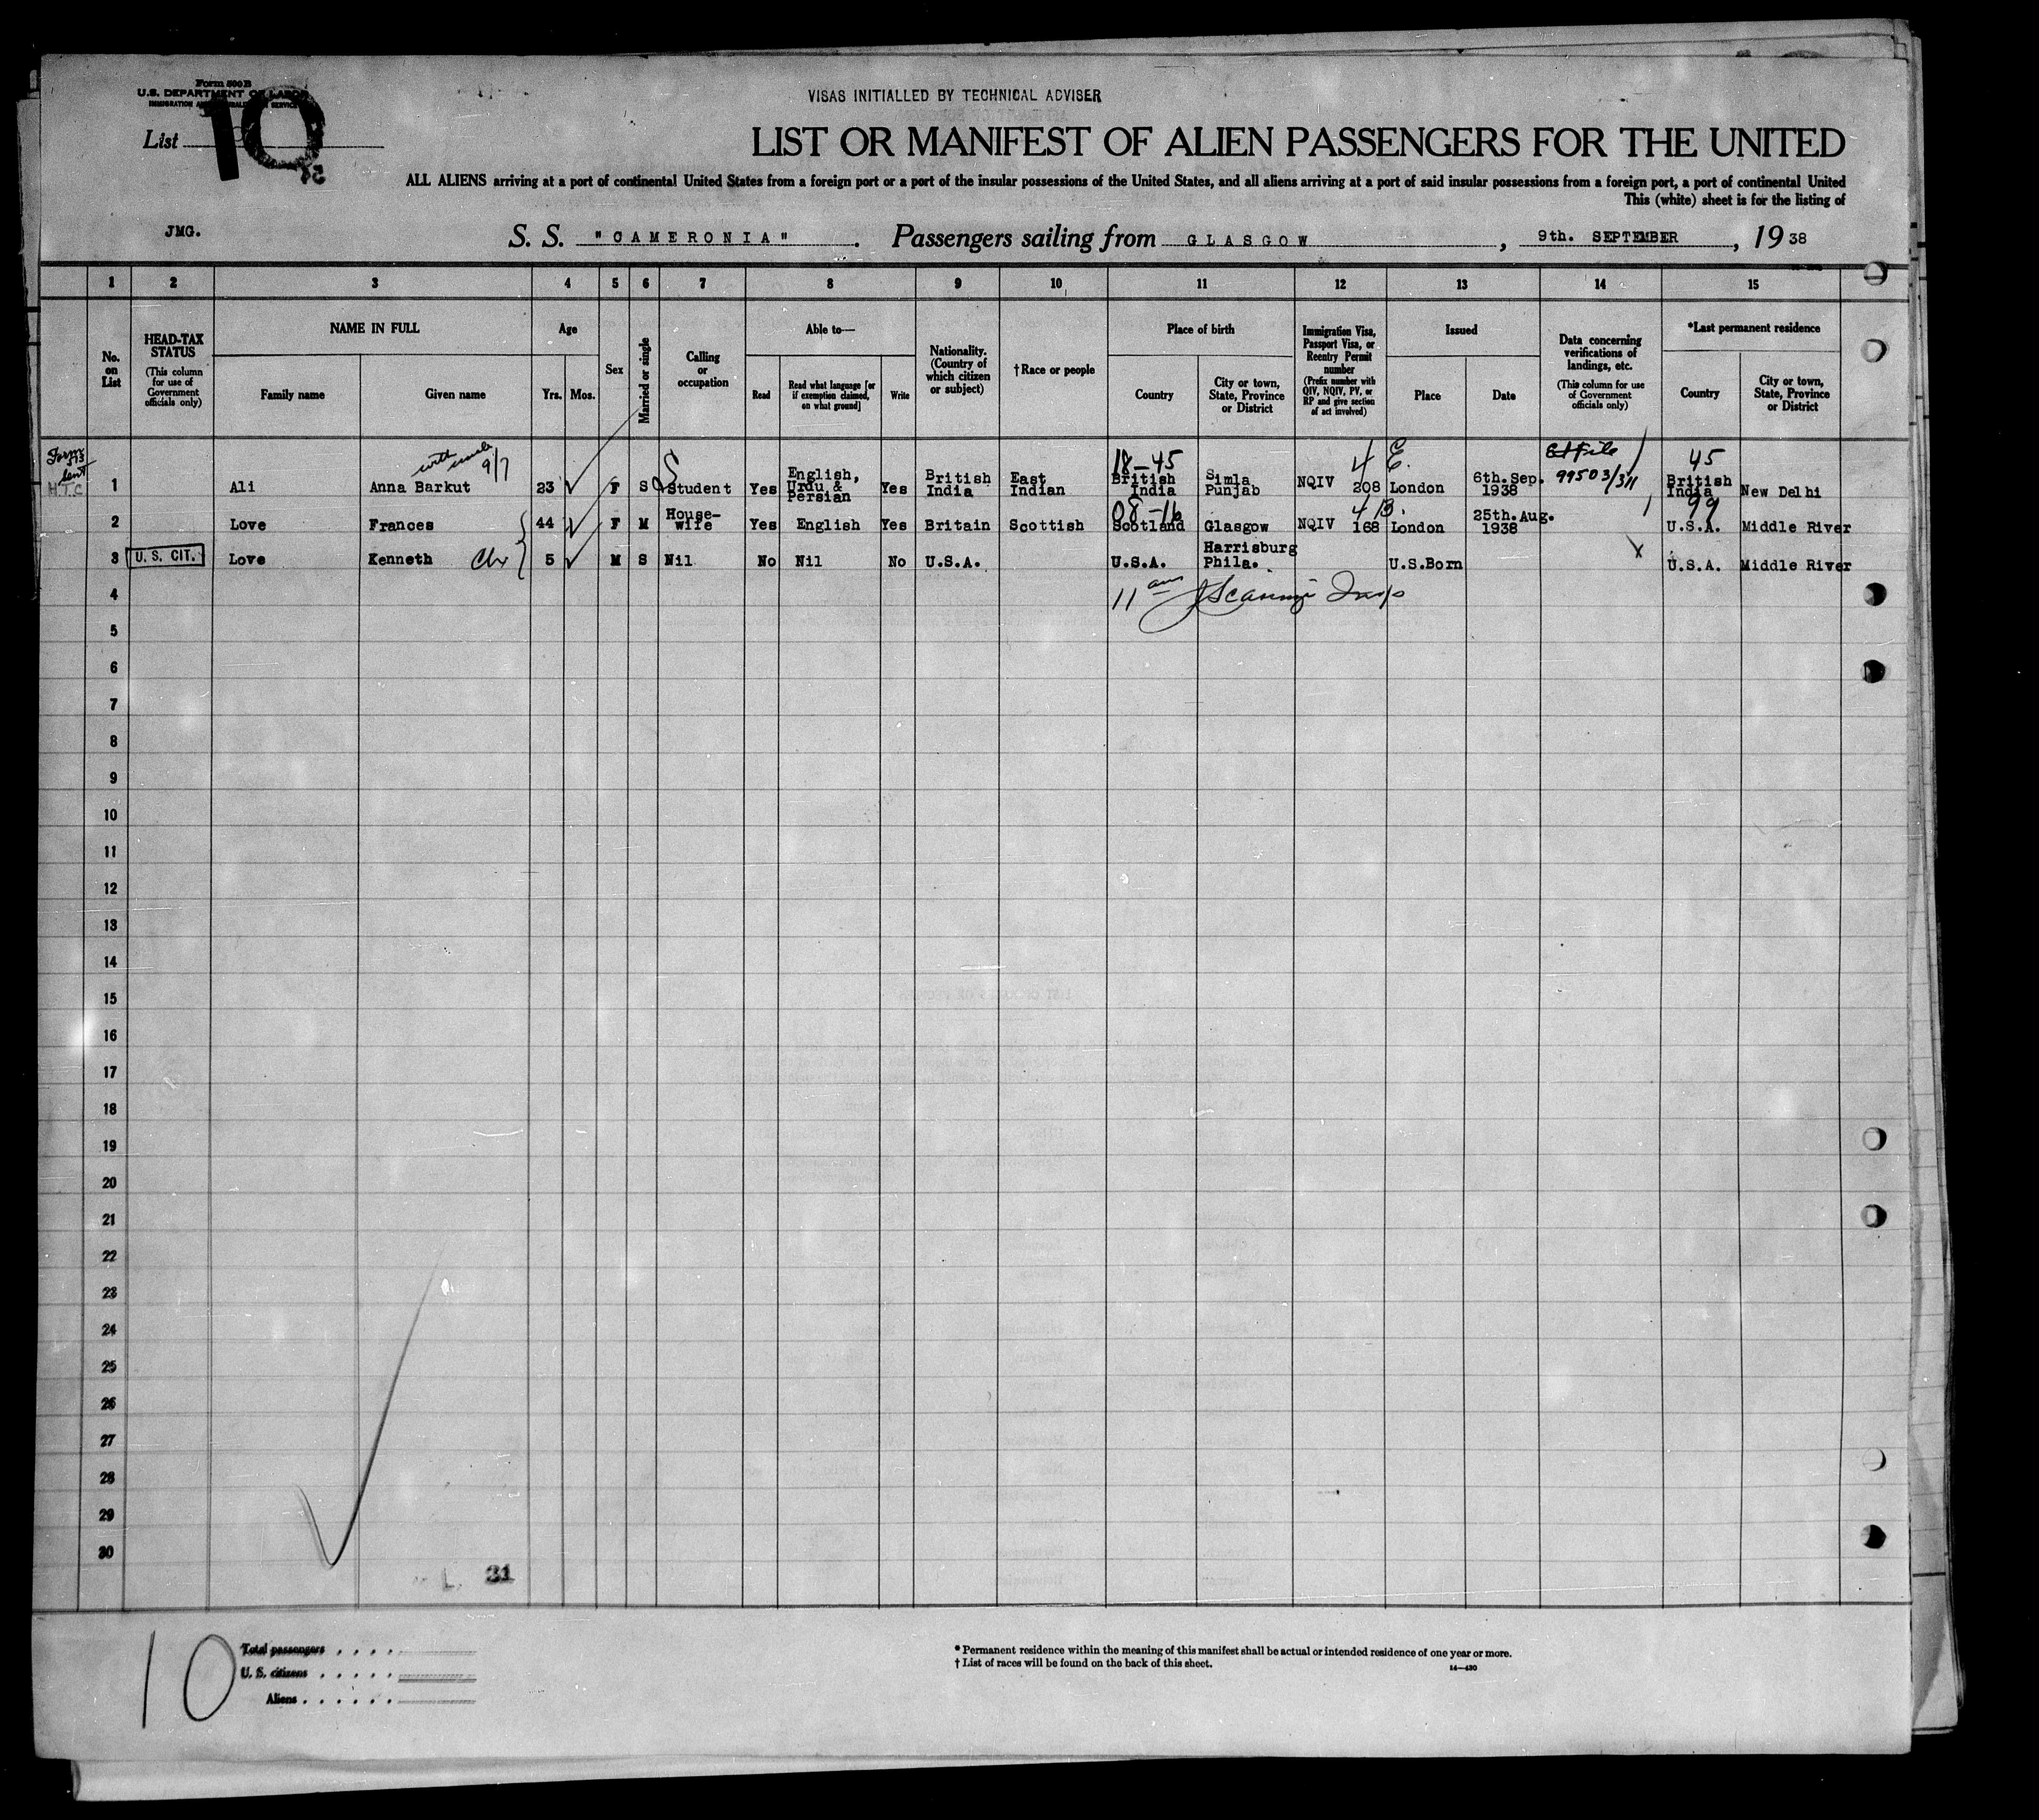 Form 500 B
U.S. DEPARTMENT OF LABOR
IMMIGRATION AND NATURALIZATION SERVICE
List 10
VISAS INITIALLED BY TECHNICAL ADVISER
LIST OR MANIFEST OF ALIEN PASSENGERS FOR THE UNITED
ALL ALIENS arriving at a port of continental United States from a foreign port or a port of the insular possessions of the United States, and all aliens arriving at a port of said insular possessions from a foreign port, a port of continental United
This (white) sheet is for the listing of
JMG.
S. S. "CAMERONIA". Passengers sailing from GLASGOW, 9th. SEPTEMBER, 19 38
1 2 3 4 5 6 7 8 9 10 11 12 13 14 15
No. on List
HEAD-TAX STATUS (This column for use of Government officials only)
NAME IN FULL
Family name Given name
Age
Yrs. Mos.
Sex
Married or single
Calling or occupation
Able to—
Read Read what language [or if exemption claimed, on what ground] Write
Nationality. (Country of which citizen or subject)
†Race or people
Place of birth
Country City or town, State, Province or District
Immigration Visa, Passport Visa, or Reentry Permit number (Prefix number with QIV, NQIV, PV, or RP and give section of act involved)
Issued
Place Date
Data concerning verifications of landings, etc. (This column for use of Government officials only)
*Last permanent residence
Country City or town, State, Province or District
sent
H.T.C
with uncle 9/7
18-45 4 E. 99503/311 45
1 Ali Anna Barkut 23 F S Student Yes English, Urdu & Persian Yes British India East Indian British India Simla Punjab NQIV 208 London 6th.Sep. 1938 British India New Delhi
08-16 4 B. 99
2 Love Frances 44 F M House-wife Yes English Yes Britain Scottish Scotland Glasgow NQIV 168 London 25th.Aug. 1938 U.S.A. Middle River
3 U. S. CIT. Love Kenneth 5 M S Nil No Nil No U.S.A. U.S.A. Harrisburg Phila. U.S.Born U.S.A. Middle River
4 11 am
5
6
7
8
9
10
11
12
13
14
15
16
17
18
19
20
21
22
23
24
25
26
27
28
29
30
L. 31
10
Total passengers . . . .
U. S. citizens . . . . .
Aliens . . . . . .
* Permanent residence within the meaning of this manifest shall be actual or intended residence of one year or more.
† List of races will be found on the back of this sheet.
14—430